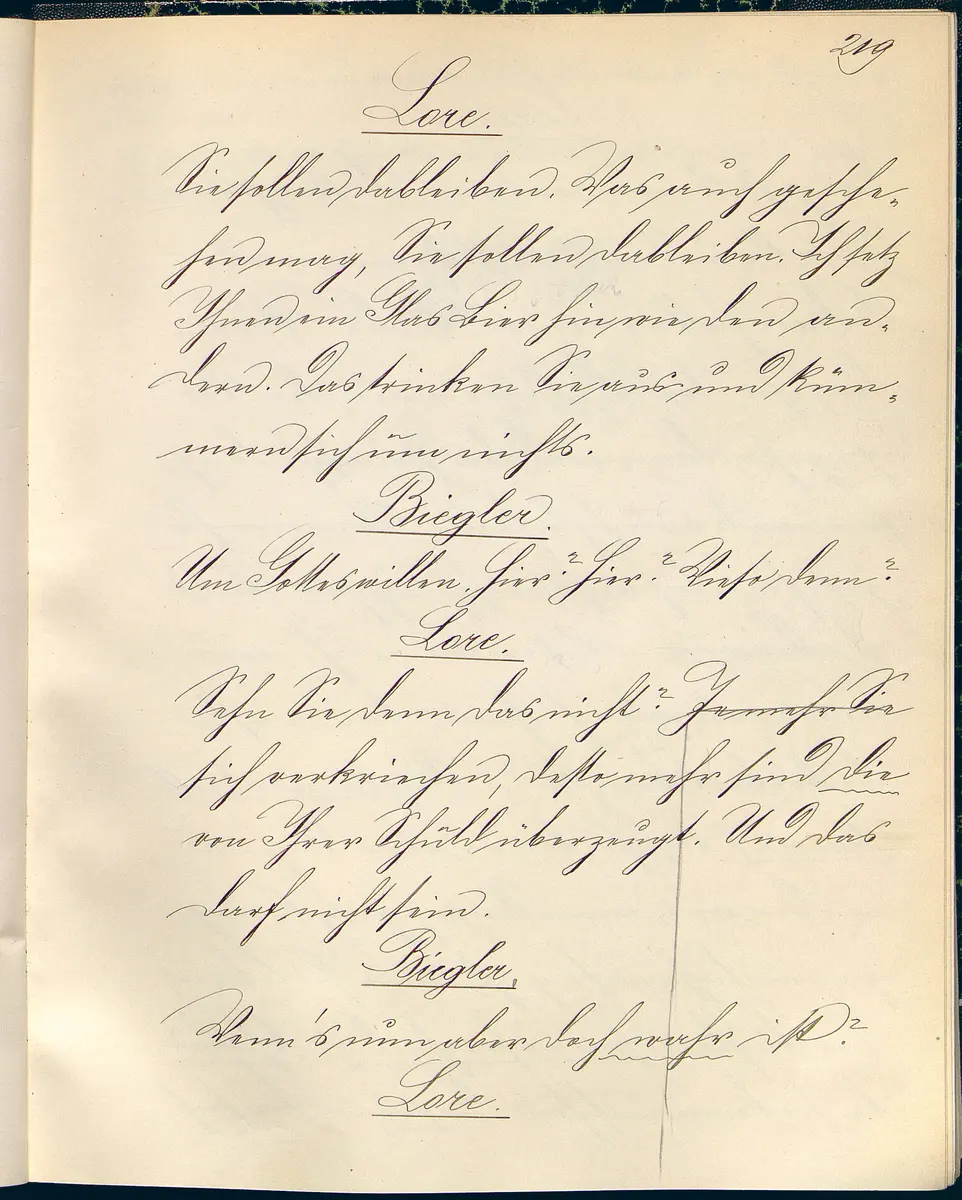 219
Lore.
Sie sollen dableiben. Was auch gesche-
hen mag, Sie sollen dableiben. Ich setz
Ihnen ein Glas Bier hin, wie den an-
dern. Das trinken Sie aus und küm-
mern sich um nichts.
Biegler.
Um Gotteswillen. Hier? Hier? Wieso denn?
Lore.
Sehn Sie denn das nicht? Je mehr Sie
sich verkriechen, desto mehr sind die
von Ihrer Schuld überzeugt. Und das
darf nicht sein.
Biegler.
Wenn's nun aber doch wahr ist?
Lore.